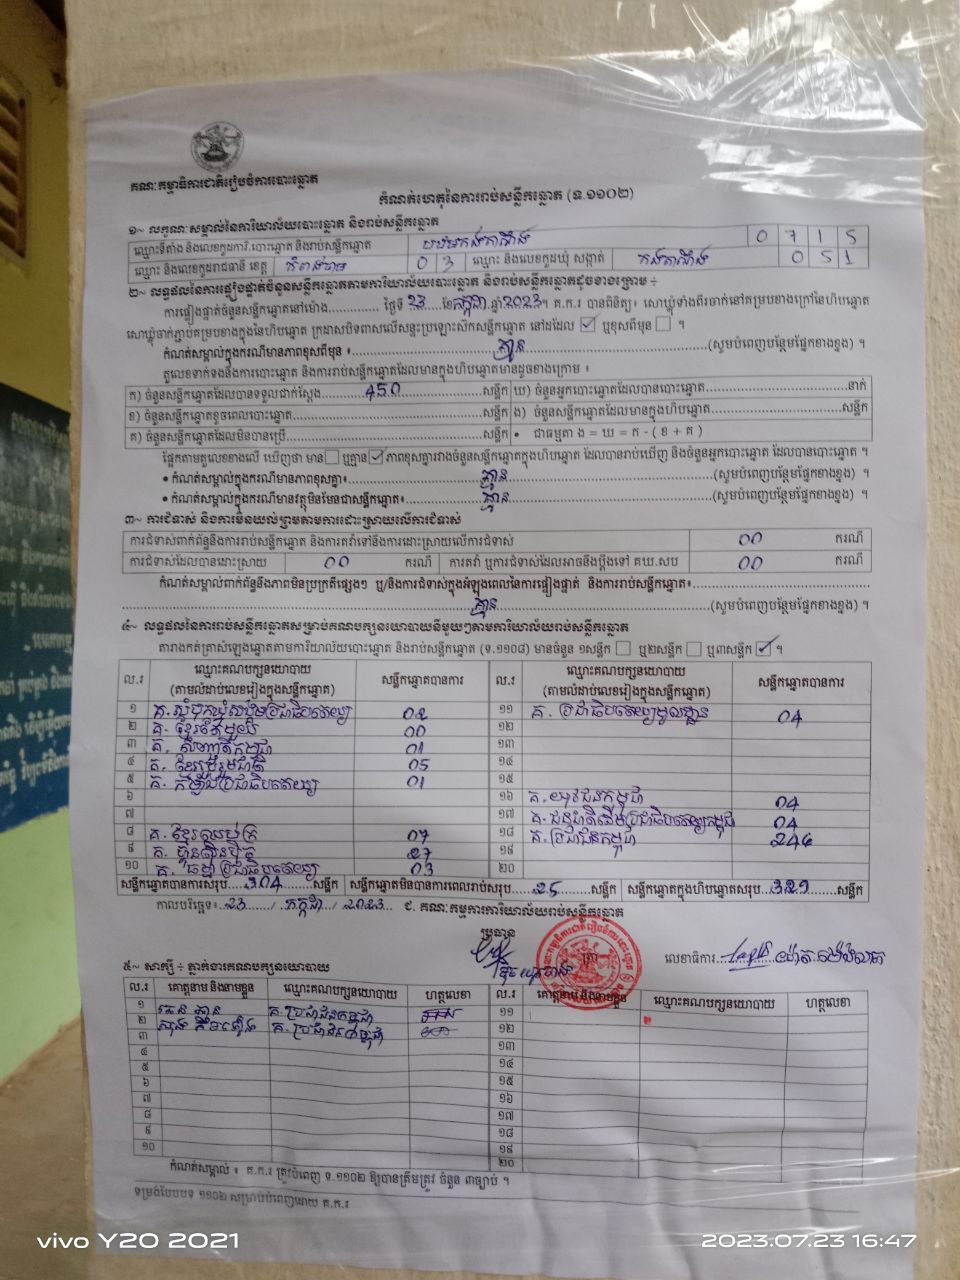 គណៈកម្មាធិការជាតិរៀបចំការបោះឆ្នោត
កំណត់ហេតុនៃការរាប់សន្លឹកឆ្នោត (ទ.១១០២)
១~ លក្ខណៈសម្គាល់នៃការិយាល័យបោះឆ្នោត និងរាប់សន្លឹកឆ្នោត
ឈ្មោះទីតាំង និងលេខកូដការិ.បោះឆ្នោត និងរាប់សន្លឹកឆ្នោត 0 7 1 5
ឈ្មោះ និងលេខកូដរាជធានី ខេត្ត កំពង់ចាម 0 3 ឈ្មោះ និងលេខកូដឃុំ សង្កាត់ 0 5 1
២~ លទ្ធផលនៃការផ្ទៀងផ្ទាត់ចំនួនសន្លឹកឆ្នោតតាមការិយាល័យបោះឆ្នោត និងរាប់សន្លឹកឆ្នោតដូចខាងក្រោម ÷
ការផ្ទៀងផ្ទាត់ចំនួនសន្លឹកឆ្នោតនៅម៉ោង............. ថ្ងៃទី 23 ខែ កក្កដា ឆ្នាំ 2023។ គ.ក.រ បានពិនិត្យ៖ សោឃ្លុំទាំងពីរចាក់នៅគម្របខាងក្រៅនៃហិបឆ្នោត
សោឃ្លុំចាក់ភ្ជាប់គម្របខាងក្នុងនៃហិបឆ្នោត ក្រដាសបិទពាសលើសន្ទះប្រឡោះស៊កសន្លឹកឆ្នោត នៅដដែល ☑ ឬខុសពីមុន ☐ ។
កំណត់សម្គាល់ក្នុងករណីមានភាពខុសពីមុន ៖ គ្មាន (សូមបំពេញបន្ថែមផ្នែកខាងខ្នង) ។
តួលេខទាក់ទងនឹងការបោះឆ្នោត និងការរាប់សន្លឹកឆ្នោតដែលមានក្នុងហិបឆ្នោតមានដូចខាងក្រោម ៖
ក) ចំនួនសន្លឹកឆ្នោតដែលបានទទួលជាក់ស្តែង 450 សន្លឹក ឃ) ចំនួនអ្នកបោះឆ្នោតដែលបានបោះឆ្នោត នាក់
ខ) ចំនួនសន្លឹកឆ្នោតខូចពេលបោះឆ្នោត សន្លឹក ង) ចំនួនសន្លឹកឆ្នោតដែលមានក្នុងហិបឆ្នោត សន្លឹក
គ) ចំនួនសន្លឹកឆ្នោតដែលមិនបានប្រើ សន្លឹក • ជាធម្មតា ង = ឃ = ក - ( ខ + គ )
ផ្អែកតាមតួលេខខាងលើ ឃើញថា មាន ☐ ឬគ្មាន ☑ ភាពខុសគ្នារវាងចំនួនសន្លឹកឆ្នោតក្នុងហិបឆ្នោត ដែលបានរាប់ឃើញ និងចំនួនអ្នកបោះឆ្នោត ដែលបានបោះឆ្នោត ។
• កំណត់សម្គាល់ក្នុងករណីមានភាពខុសគ្នា៖ គ្មាន (សូមបំពេញបន្ថែមផ្នែកខាងខ្នង) ។
• កំណត់សម្គាល់ក្នុងករណីមានវត្ថុមិនមែនជាសន្លឹកឆ្នោត៖ គ្មាន (សូមបំពេញបន្ថែមផ្នែកខាងខ្នង) ។
៣~ ការជំទាស់ និងការមិនយល់ព្រមតាមការដោះស្រាយលើការជំទាស់
ការជំទាស់ពាក់ព័ន្ធនឹងការរាប់សន្លឹកឆ្នោត និងការតវ៉ាទៅនឹងការដោះស្រាយលើការជំទាស់ 00 ករណី
ការជំទាស់ដែលបានដោះស្រាយ 00 ករណី ការតវ៉ា ឬការជំទាស់ដែលអាចនឹងប្តឹងទៅ គឃ.សប 00 ករណី
កំណត់សម្គាល់ពាក់ព័ន្ធនឹងភាពមិនប្រក្រតីផ្សេងៗ ឬ/និងការជំទាស់ក្នុងអំឡុងពេលនៃការផ្ទៀងផ្ទាត់ និងការរាប់សន្លឹកឆ្នោត៖
គ្មាន (សូមបំពេញបន្ថែមផ្នែកខាងខ្នង) ។
៤~ លទ្ធផលនៃការរាប់សន្លឹកឆ្នោតសម្រាប់គណបក្សនយោបាយនីមួយៗតាមការិយាល័យរាប់សន្លឹកឆ្នោត
តារាងកត់ត្រាសំឡេងឆ្នោតតាមការិយាល័យបោះឆ្នោត និងរាប់សន្លឹកឆ្នោត (ទ.១១០៨) មានចំនួន ១សន្លឹក ☐ ឬ២សន្លឹក ☐ ឬ៣សន្លឹក ☑ ។
ល.រ ឈ្មោះគណបក្សនយោបាយ (តាមលំដាប់លេខរៀងក្នុងសន្លឹកឆ្នោត) សន្លឹកឆ្នោតបានការ ល.រ ឈ្មោះគណបក្សនយោបាយ (តាមលំដាប់លេខរៀងក្នុងសន្លឹកឆ្នោត) សន្លឹកឆ្នោតបានការ
១ គ. សំបុកឃ្មុំសង្គមប្រជាធិបតេយ្យ 02 ១១ គ. ប្រជាធិបតេយ្យមូលដ្ឋាន 04
២ គ. ខ្មែរតែមួយ 00 ១២
៣ គ. សញ្ជាតិកម្ពុជា 01 ១៣
៤ គ. ខ្មែររួបរួមជាតិ 05 ១៤
៥ គ. កម្លាំងប្រជាធិបតេយ្យ 01 ១៥
៦ ១៦ គ. យុវជនកម្ពុជា 04
៧ ១៧ គ. ជនជាតិដើមប្រជាធិបតេយ្យកម្ពុជា 04
៨ គ. ខ្មែរឈប់ក្រ 07 ១៨ គ. ប្រជាជនកម្ពុជា 246
៩ គ. ហ្វ៊ុនស៊ិនប៉ិច 27 ១៩
១០ គ. ធម្មាធិបតេយ្យ 03 ២០
សន្លឹកឆ្នោតបានការសរុប 304 សន្លឹក សន្លឹកឆ្នោតមិនបានការពេលរាប់សរុប 25 សន្លឹក សន្លឹកឆ្នោតក្នុងហិបឆ្នោតសរុប 329 សន្លឹក
កាលបរិច្ឆេទ៖ 23 / កក្កដា / 2023 ជ. គណៈកម្មការការិយាល័យរាប់សន្លឹកឆ្នោត
ប្រធាន
លេខាធិការ
៥~ សាក្សី ÷ ភ្នាក់ងារគណបក្សនយោបាយ
ល.រ គោត្តនាម និងនាមខ្លួន ឈ្មោះគណបក្សនយោបាយ ហត្ថលេខា ល.រ គោត្តនាម និងនាមខ្លួន ឈ្មោះគណបក្សនយោបាយ ហត្ថលេខា
១ គ. ប្រជាជនកម្ពុជា ១១
២ គ. ប្រជាជនកម្ពុជា ១២
៣ ១៣
៤ ១៤
៥ ១៥
៦ ១៦
៧ ១៧
៨ ១៨
៩ ១៩
១០ ២០
កំណត់សម្គាល់ ៖ គ.ក.រ ត្រូវបំពេញ ទ.១១០២ ឱ្យបានត្រឹមត្រូវ ចំនួន ៣ច្បាប់ ។
ទម្រង់បែបបទ ១១០២ សម្រាប់បំពេញដោយ គ.ក.រ
vivo Y20 2021
2023.07.23 16:47